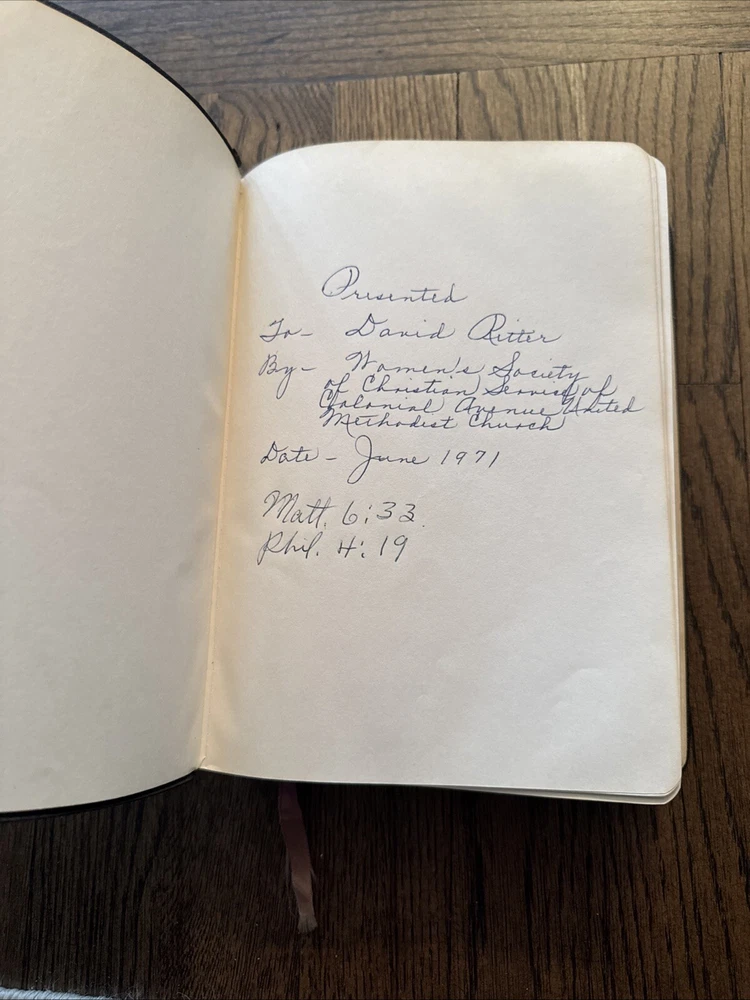 Presented
To - David Ritter
By - Women's Society
of Christian Service of
Colonial Avenue United
Methodist Church
Date - June 1971
Matt. 6:33
Phil. 4:19